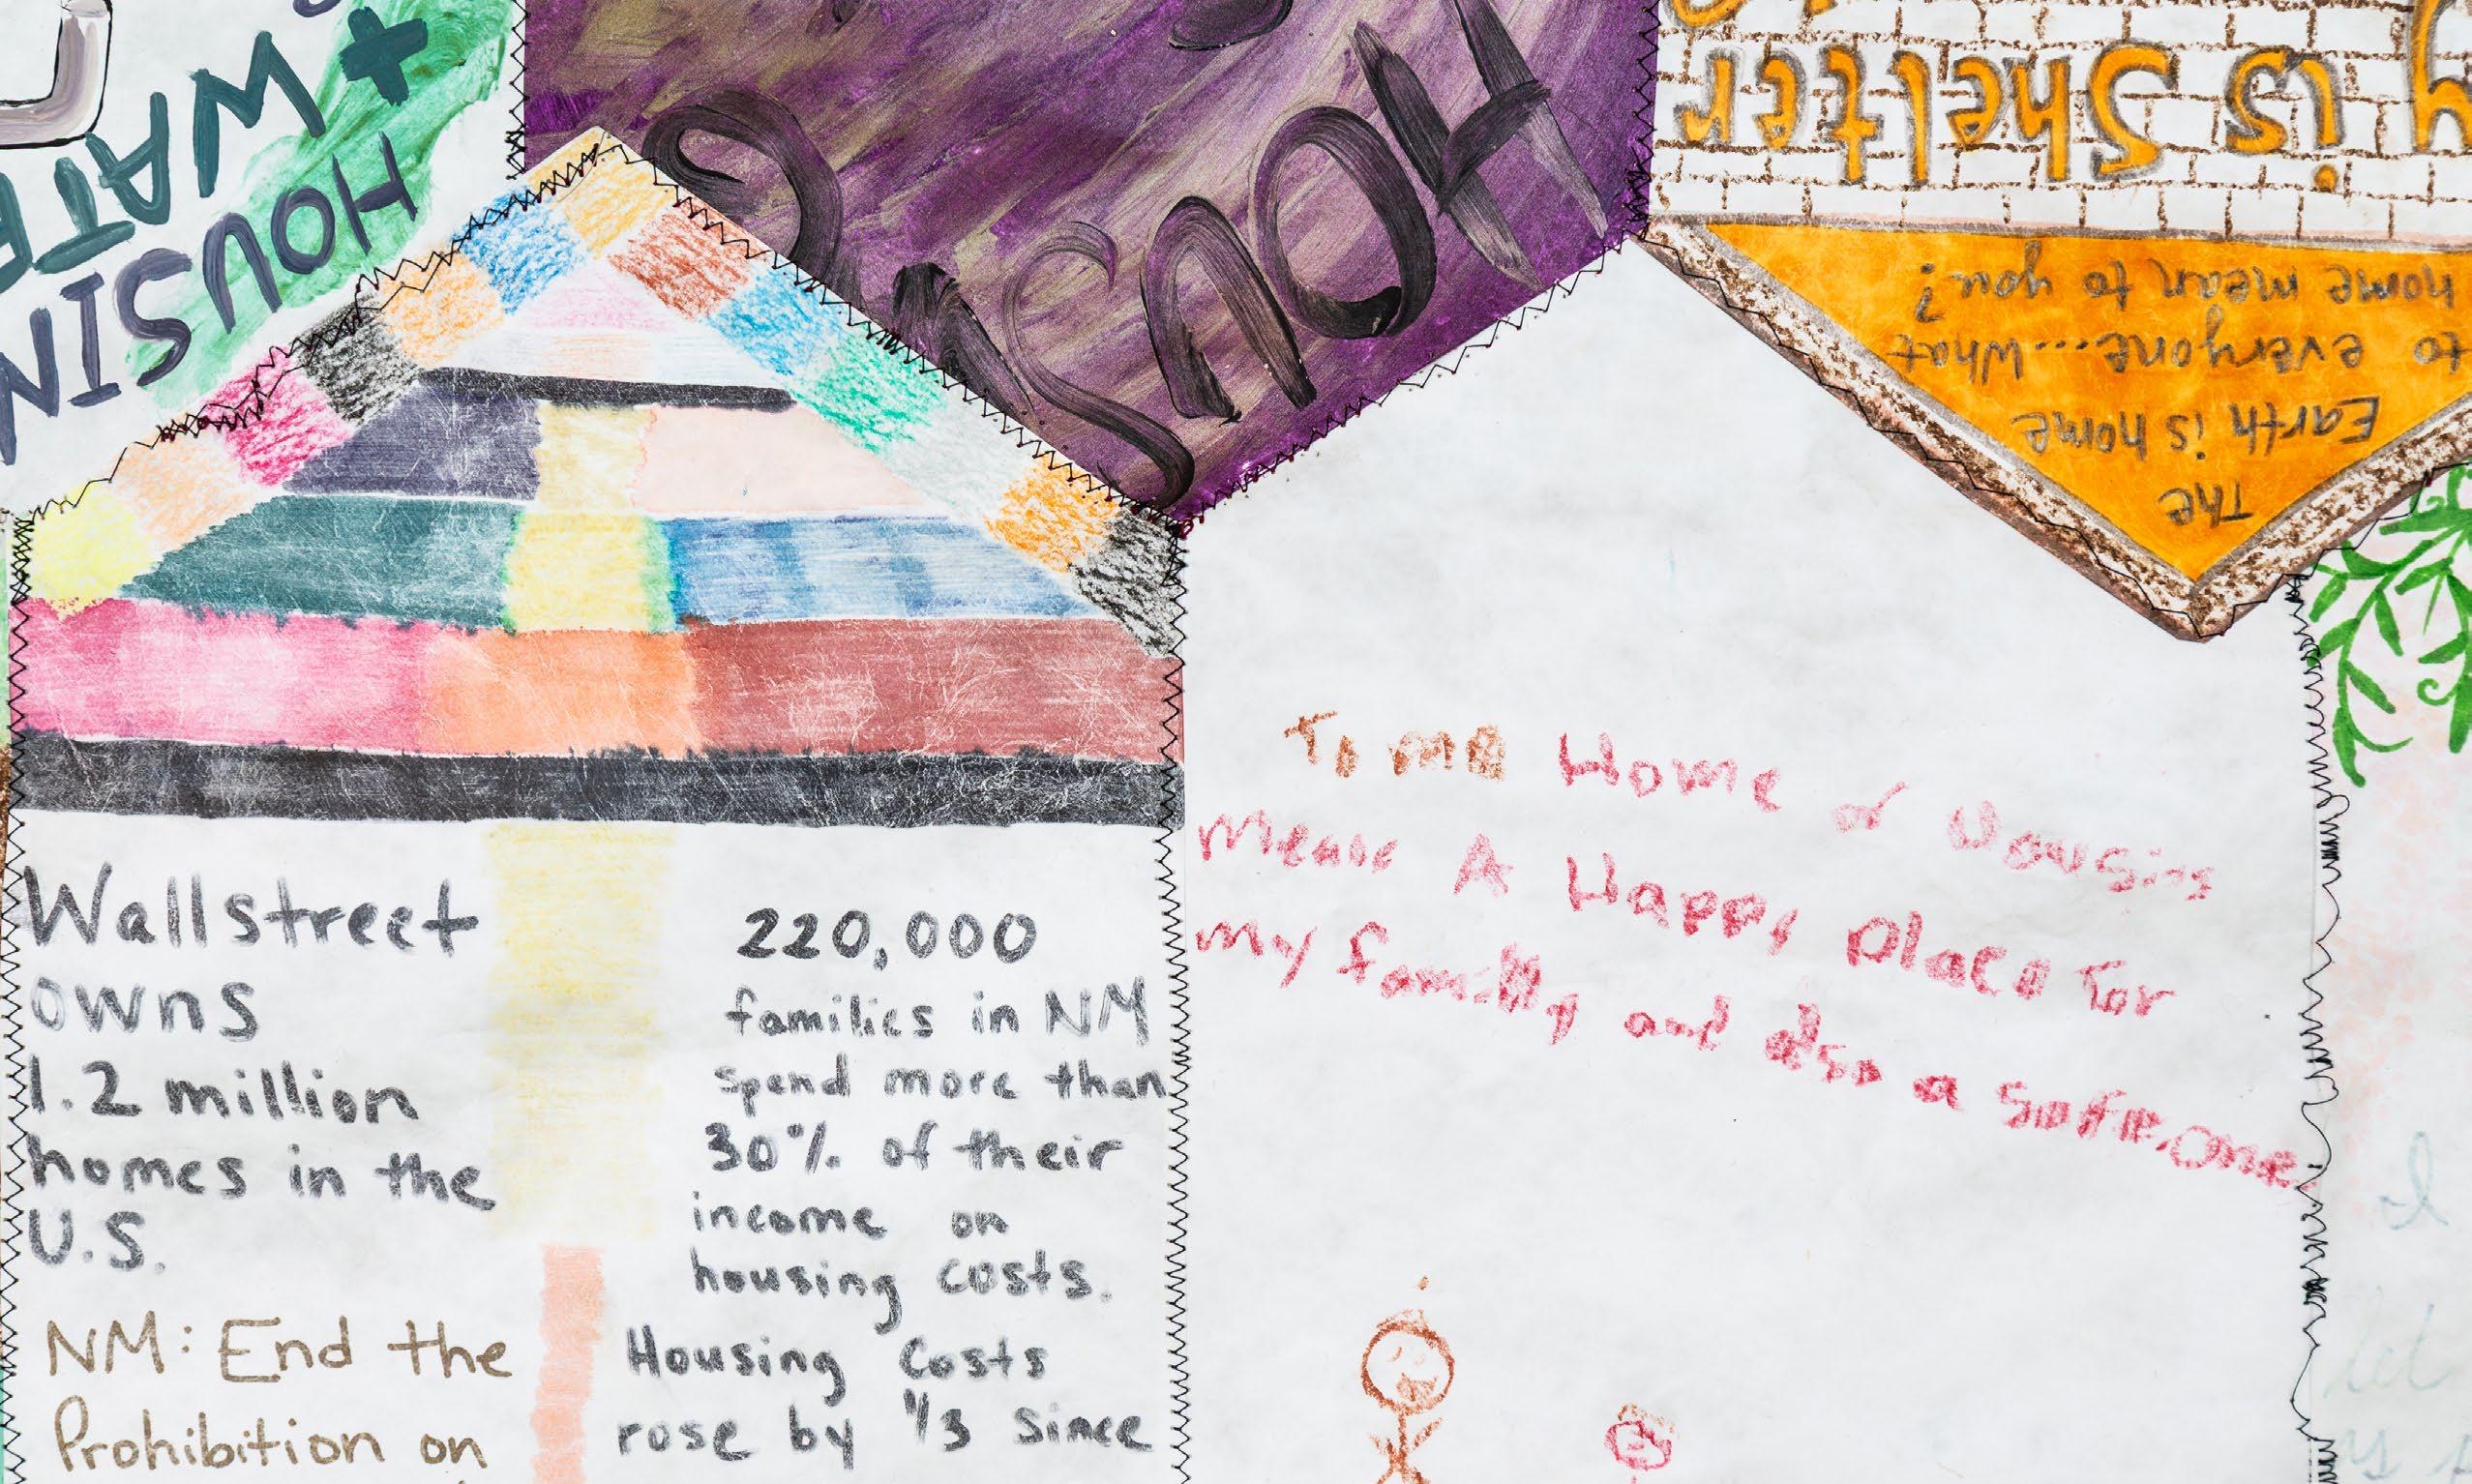 +
WATE
HOUSIN
HOUS
y is Shelter
The
Earth is home
to everyone...What
home mean to you?
Wallstreet
owns
1.2 million
homes in the
U.S.
NM: End the
Prohibition on
220,000
families in NM
spend more than
30% of their
income on
housing costs.
Housing Costs
rose by 1/3 since
To me Home or Housing
means A Happy place for
my familly and also a saffe.one
I